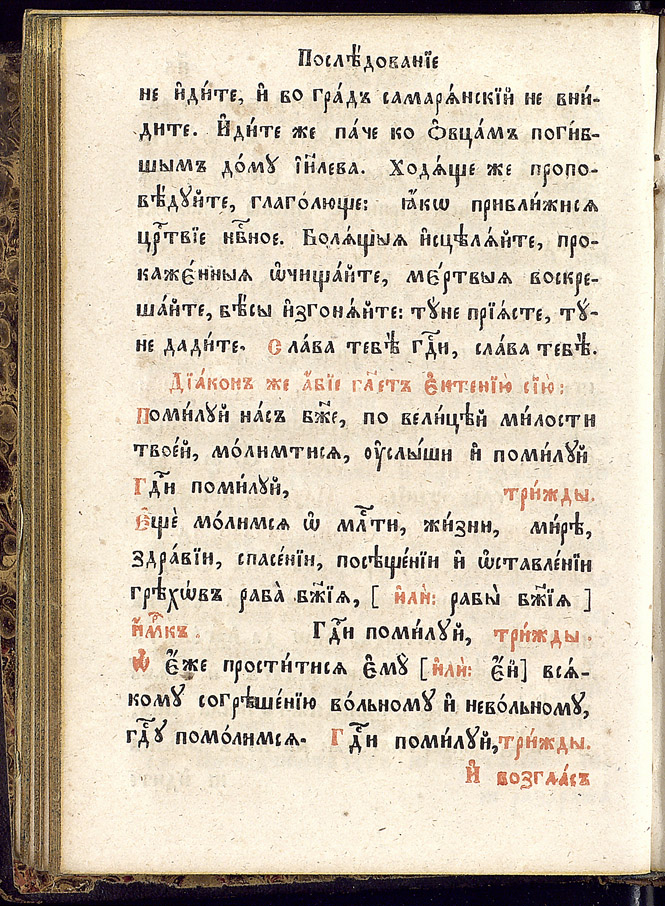 Послѣ́дованїе
не и҆ди́те, и҆ во гра́дъ самарѧ́нскїй не вни́-
дите. И҆ди́те же па́че ко ѻ҆вца́мъ поги́б-
шымъ до́мꙋ і҆и҃лева. Ходѧ́ще же пропо-
вѣ́дꙋйте, глаго́люще: ꙗ҆́кѡ прибли́жисѧ
црⷭ҇твїе нбⷭ҇ное. Болѧ́щыѧ и҆сцѣлѧ́йте, про-
каже́нныѧ ѡ҆чища́йте, ме́ртвыѧ воскре-
ша́йте, бѣ́сы и҆згонѧ́йте: тꙋ́не прїѧ́сте, тꙋ́-
не дади́те. Сла́ва тебѣ̀ гдⷭ҇и, сла́ва тебѣ̀.
Дїа́конъ же а҆́бїе гл҃етъ є҆ктенїю̀ сїю̀:
Поми́лꙋй на́съ бж҃е, по вели́цѣй ми́лости
твое́й, мо́лимтисѧ, ᲂу҆слы́ши и҆ поми́лꙋй
Гдⷭ҇и поми́лꙋй, три́жды.
Є҆щѐ мо́лимсѧ ѡ҆ млⷭ҇ти, жи́зни, ми́рѣ,
здра́вїи, спасе́нїи, посѣще́нїи и҆ ѡ҆ставле́нїи
грѣхѡ́въ раба̀ бж҃їѧ, [ и҆лѝ: рабы̀ бж҃їѧ ]
и҆́мⷬ҇къ. Гдⷭ҇и поми́лꙋй, три́жды.
Ѡ҆ є҆́же прости́тисѧ є҆мꙋ̀ [и҆лѝ: є҆́й] всѧ́-
комꙋ согрѣше́нїю во́льномꙋ и҆ нево́льномꙋ,
гдⷭ҇ꙋ помо́лимсѧ. Гдⷭ҇и поми́лꙋй,три́жды.
И҆ возгла́съ